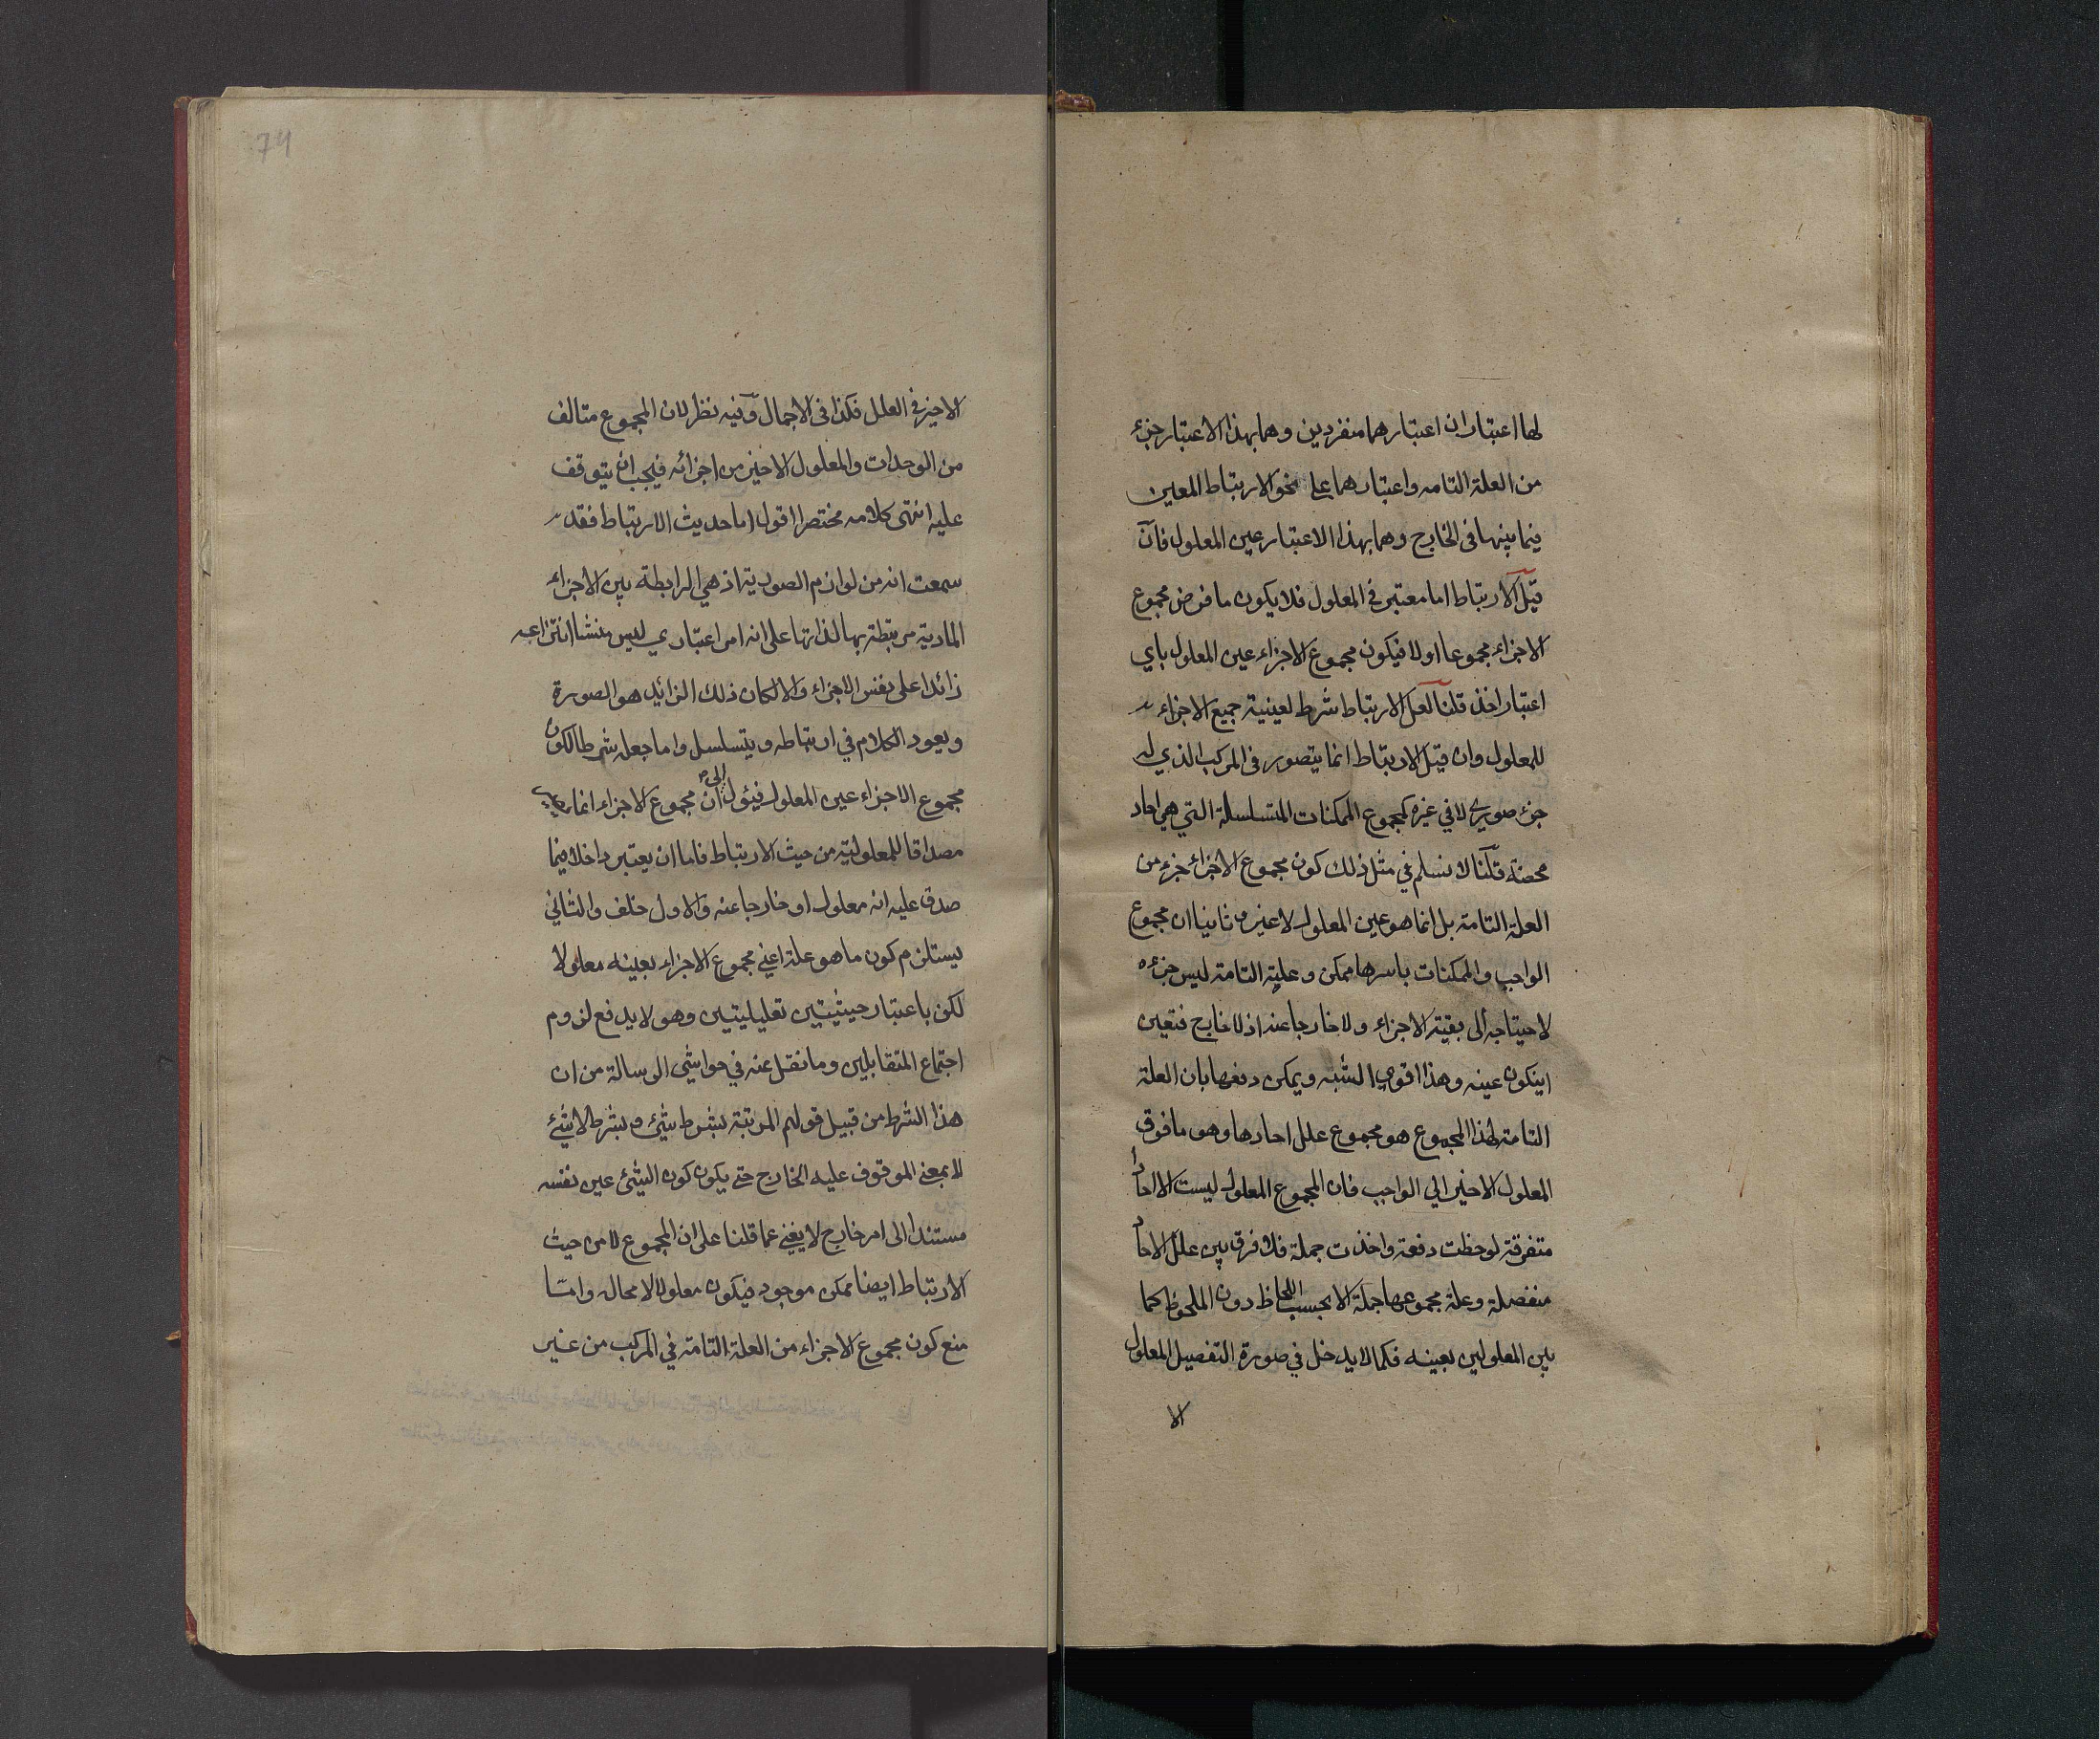 لهما اعتباران اعتبارهما منفردين وهما بهذا الاعتبار جزء
من العلة التامه واعتبارهما على نحو الارتباط المعين
فيما بينهما في الخارج وهما بهذا الاعتبار عين المعلول فان
قيل الارتباط اما معتبر في المعلول فلا يكون ما فرض مجموع
الاجزاء مجموعا اولا فيكون مجموع الاجزاء عين المعلول باي
اعتبار اخذ قلنا لعل الارتباط شرط لعينية جميع الاجزاء
للمعلول وان قيل الارتباط انما يتصور في المركب الذي له
جزء صوري لا في غيره كمجموع الممكنات المتسلسلة التي هي احاد
محضة قلنا لا نسلم في مثل ذلك كون مجموع الاجزاء جزء من
العلة التامة بل انما هو عين المعلول لا غير و ثانيا ان مجموع
الواجب والممكنات باسرها ممكن وعليته التامة ليس جزءه
لاحتياجه الى بقية الاجزاء ولا خارجا عنه اذ لا خارج فتعين
ان يكون عينه وهذا اقوى الشبه ويمكن دفعها بان العلة
التامة لهذا المجموع هو مجموع علل احادها وهو ما فوق
المعلول الاخير الي الواجب فان المجموع المعلول ليست الا احادا
متفرقة لوحظت دفعة واخذت جملة فلا فرق بين علل الاحاد
منفصلة وعلة مجموعها جملة الا بحسب اللحاظ دون الملحوظ كما
بين المعلولين بعينه فكما لا يدخل في صورة التفصيل المعلول
الا
74
الاخير في العلل فكذا في الاجمال وفيه نظر لان المجموع متالف
من الوحدات والمعلول الاخير من اجزائه فيجب ان يتوقف
عليه انتهى كلامه مختصرا اقول اما حديث الارتباط فقد
سمعت انه من لوازم الصورية اذ هي الرابطة بين الاجزاء
المادية مرتبطة بها لذاتها على انه امر اعتباري ليس منشا انتزاعه
زائدا على نفس الاجزاء والا لكان ذلك الزائد هو الصورة
ويعود الكلام في ارتباطه ويتسلسل واما جعله شرطا لكون
مجموع الاجزاء عين المعلول فيئول الى ان مجموع الاجزاء انما
مصداقا للمعلولية من حيث الارتباط فاما ان يعتبر داخلا فيما
صدق عليه انه معلول او خارجا عنه والاول خلف والثاني
يستلزم كون ما هو علة اعني مجموع الاجزاء بعينه معلولا
لكن باعتبار حيثيتين تعليليتين وهو لا يدفع لزوم
اجتماع المتقابلين وما نقل عنه في حواشي الرسالة من ان
هذا الشرط من قبيل قولهم المرتبة بشرط شيئ و بشرط لا شيئ
لا بمعنى الموقوف عليه الخارج حتى يكون كون الشيئ عين نفسه
مستندا الى امر خارج لا يغني عما قلنا على ان المجموع لا من حيث
الارتباط ايضا ممكن موجود فيكون معلولا لا محالة وامّا
منع كون مجموع الاجزاء من العلة التامة في المركب من غير